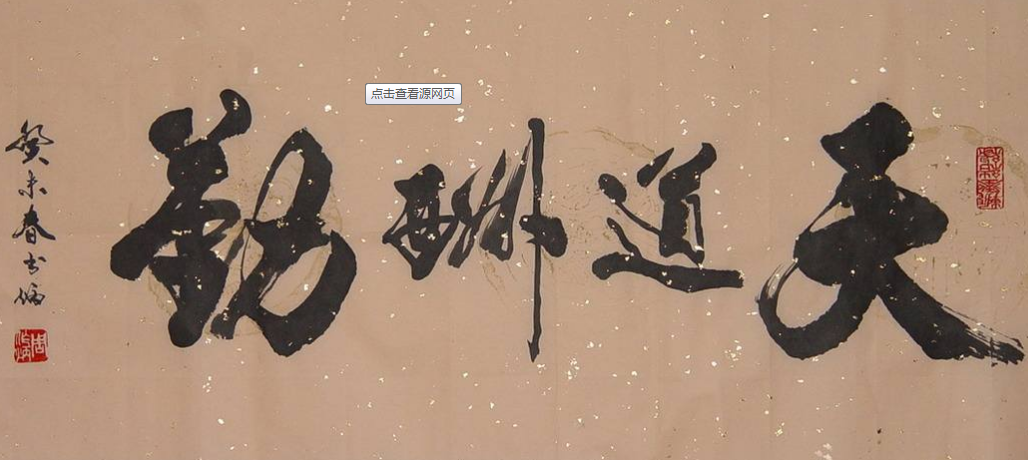 天道酬勤
癸未春书
点击查看源网页